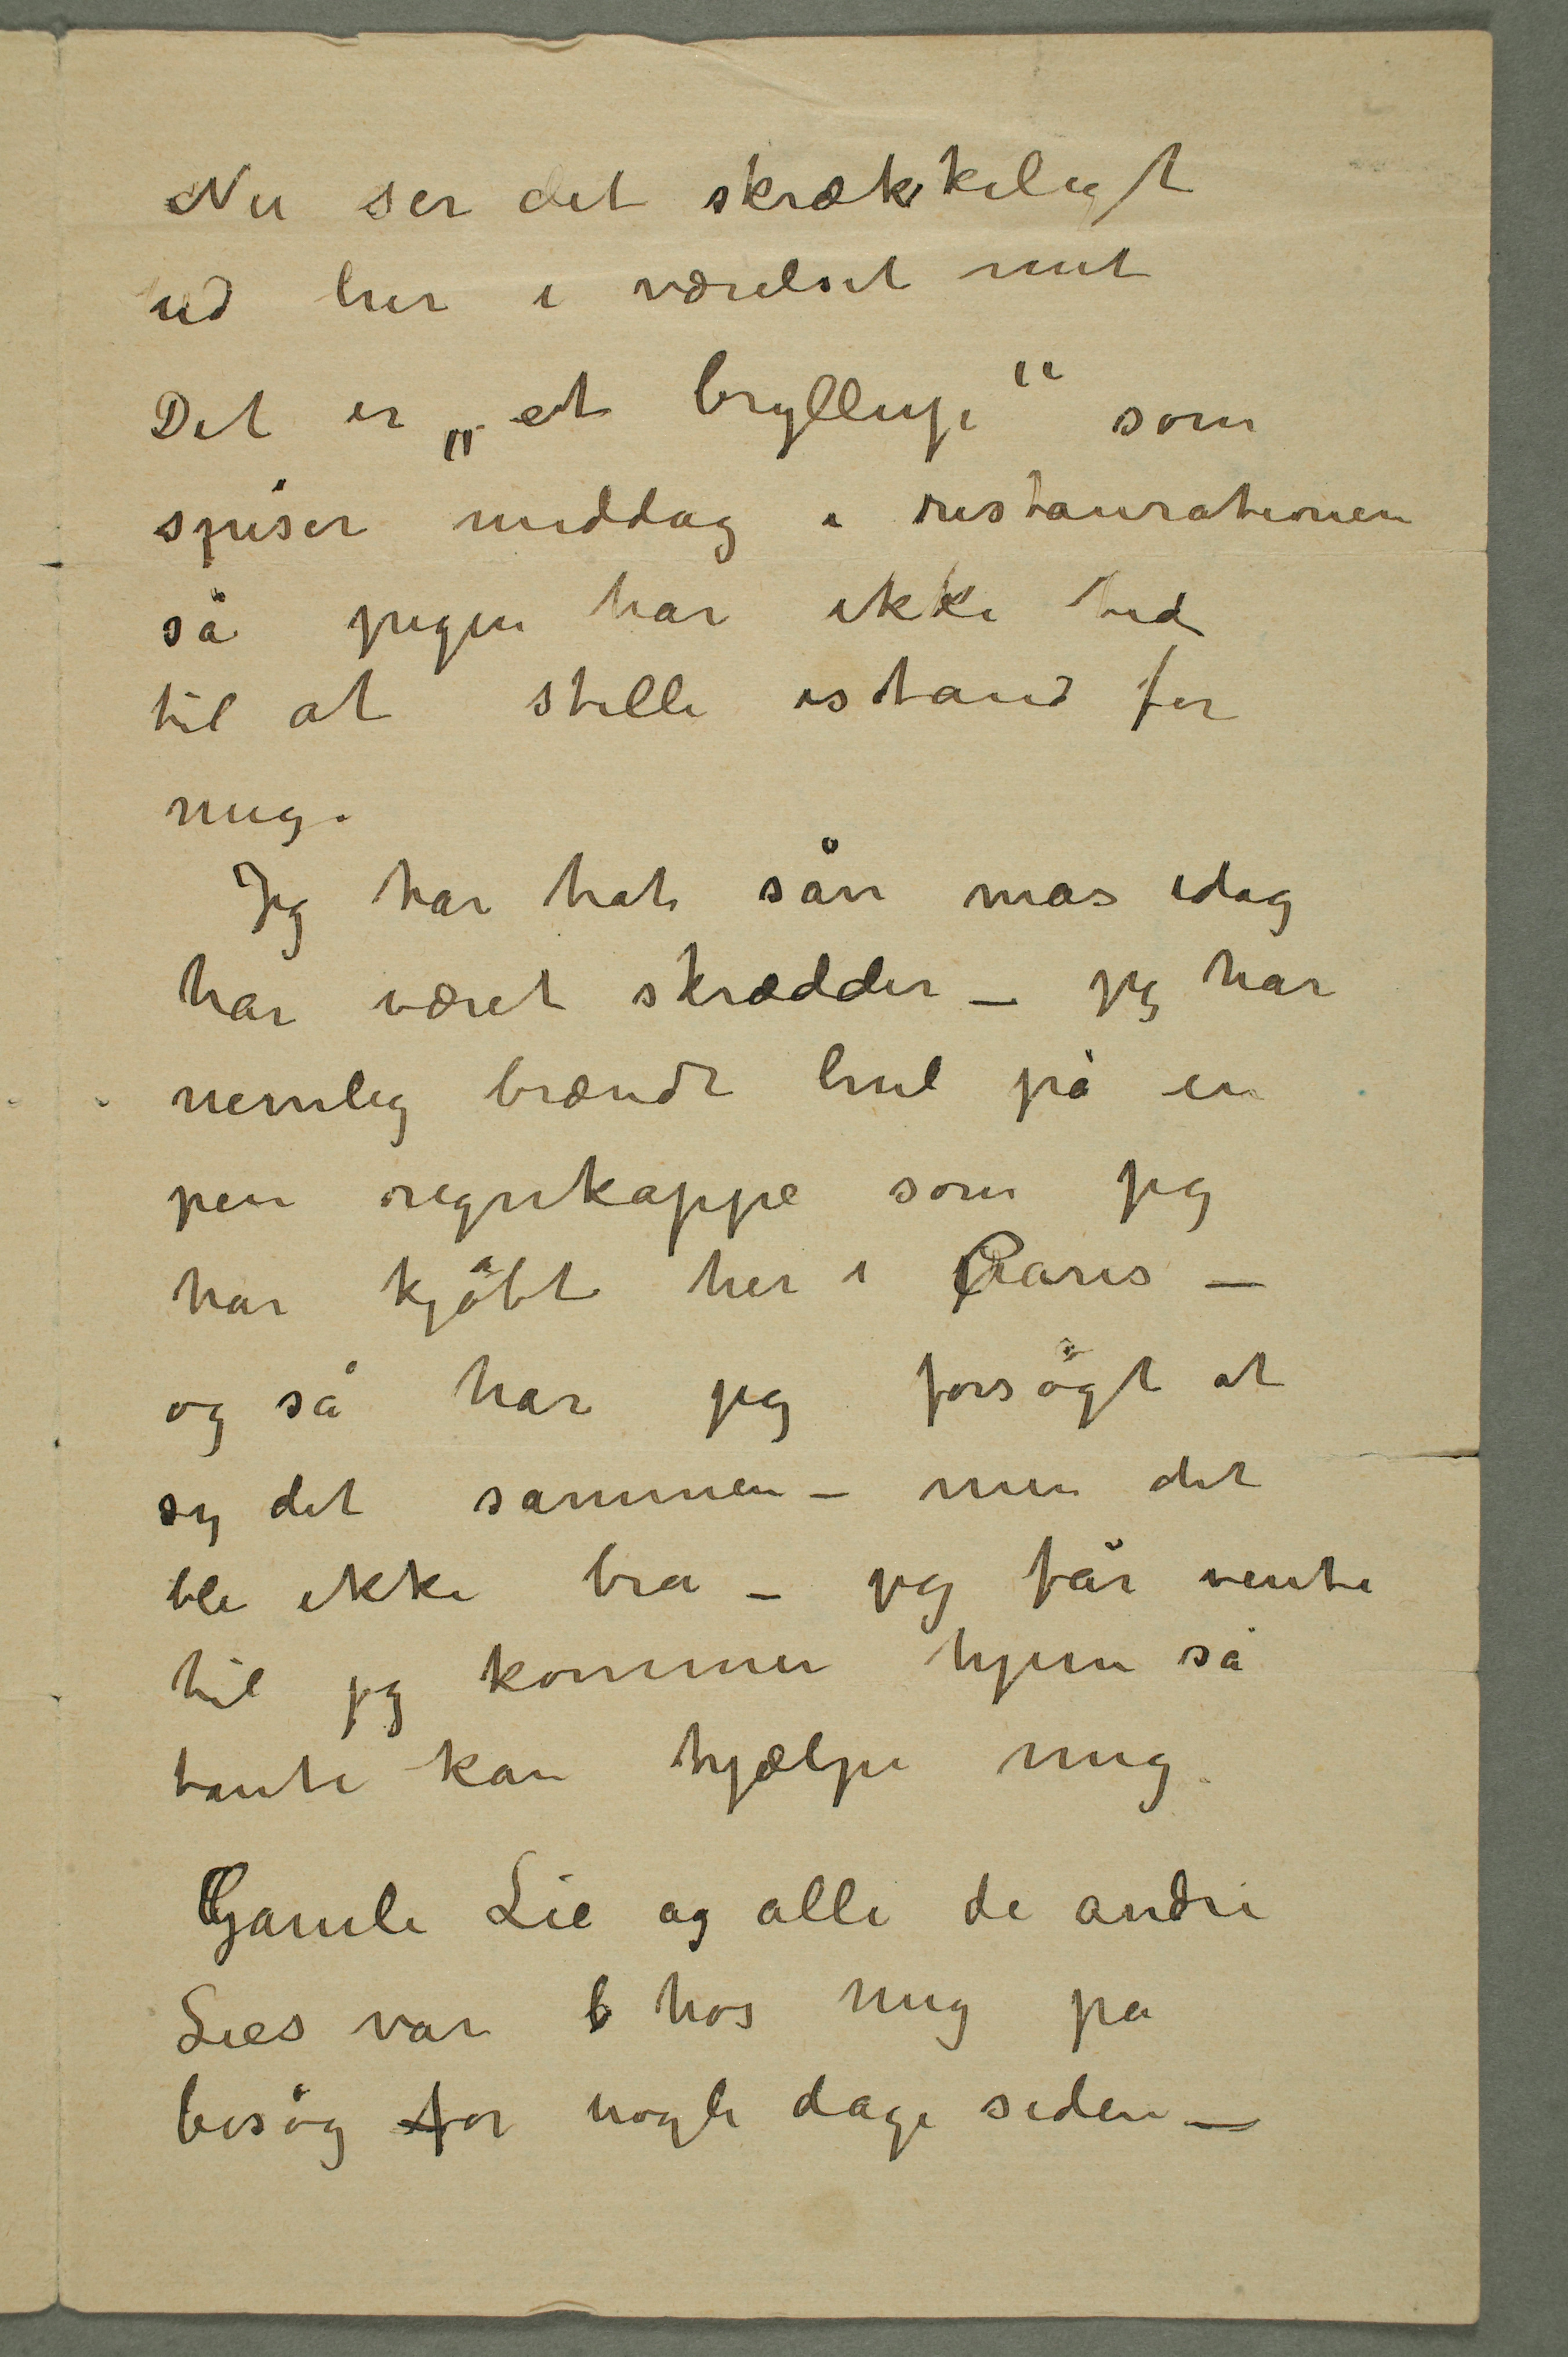 Nu ser det skrækkeligt
ud her i værelset mit
Det er „et bryllup“ som
spiser middag i restaurationen
så pigen har ikke tid
til at stelle istand for
mig.
Jeg har hat sån mas idag
har været skrædder – jeg har
nemlig brændt hul på en
pen regnkappe som jeg
har kjöbt her i Paris –
og så har jeg forsögt at
sy det sammen – men det
ble ikke bra – jeg får vente
til jeg kommer hjem så
tante kan hjælpe mig
Gamle Lie og alle de andre
Lies var hos mig pa
besög for nogle dage siden –